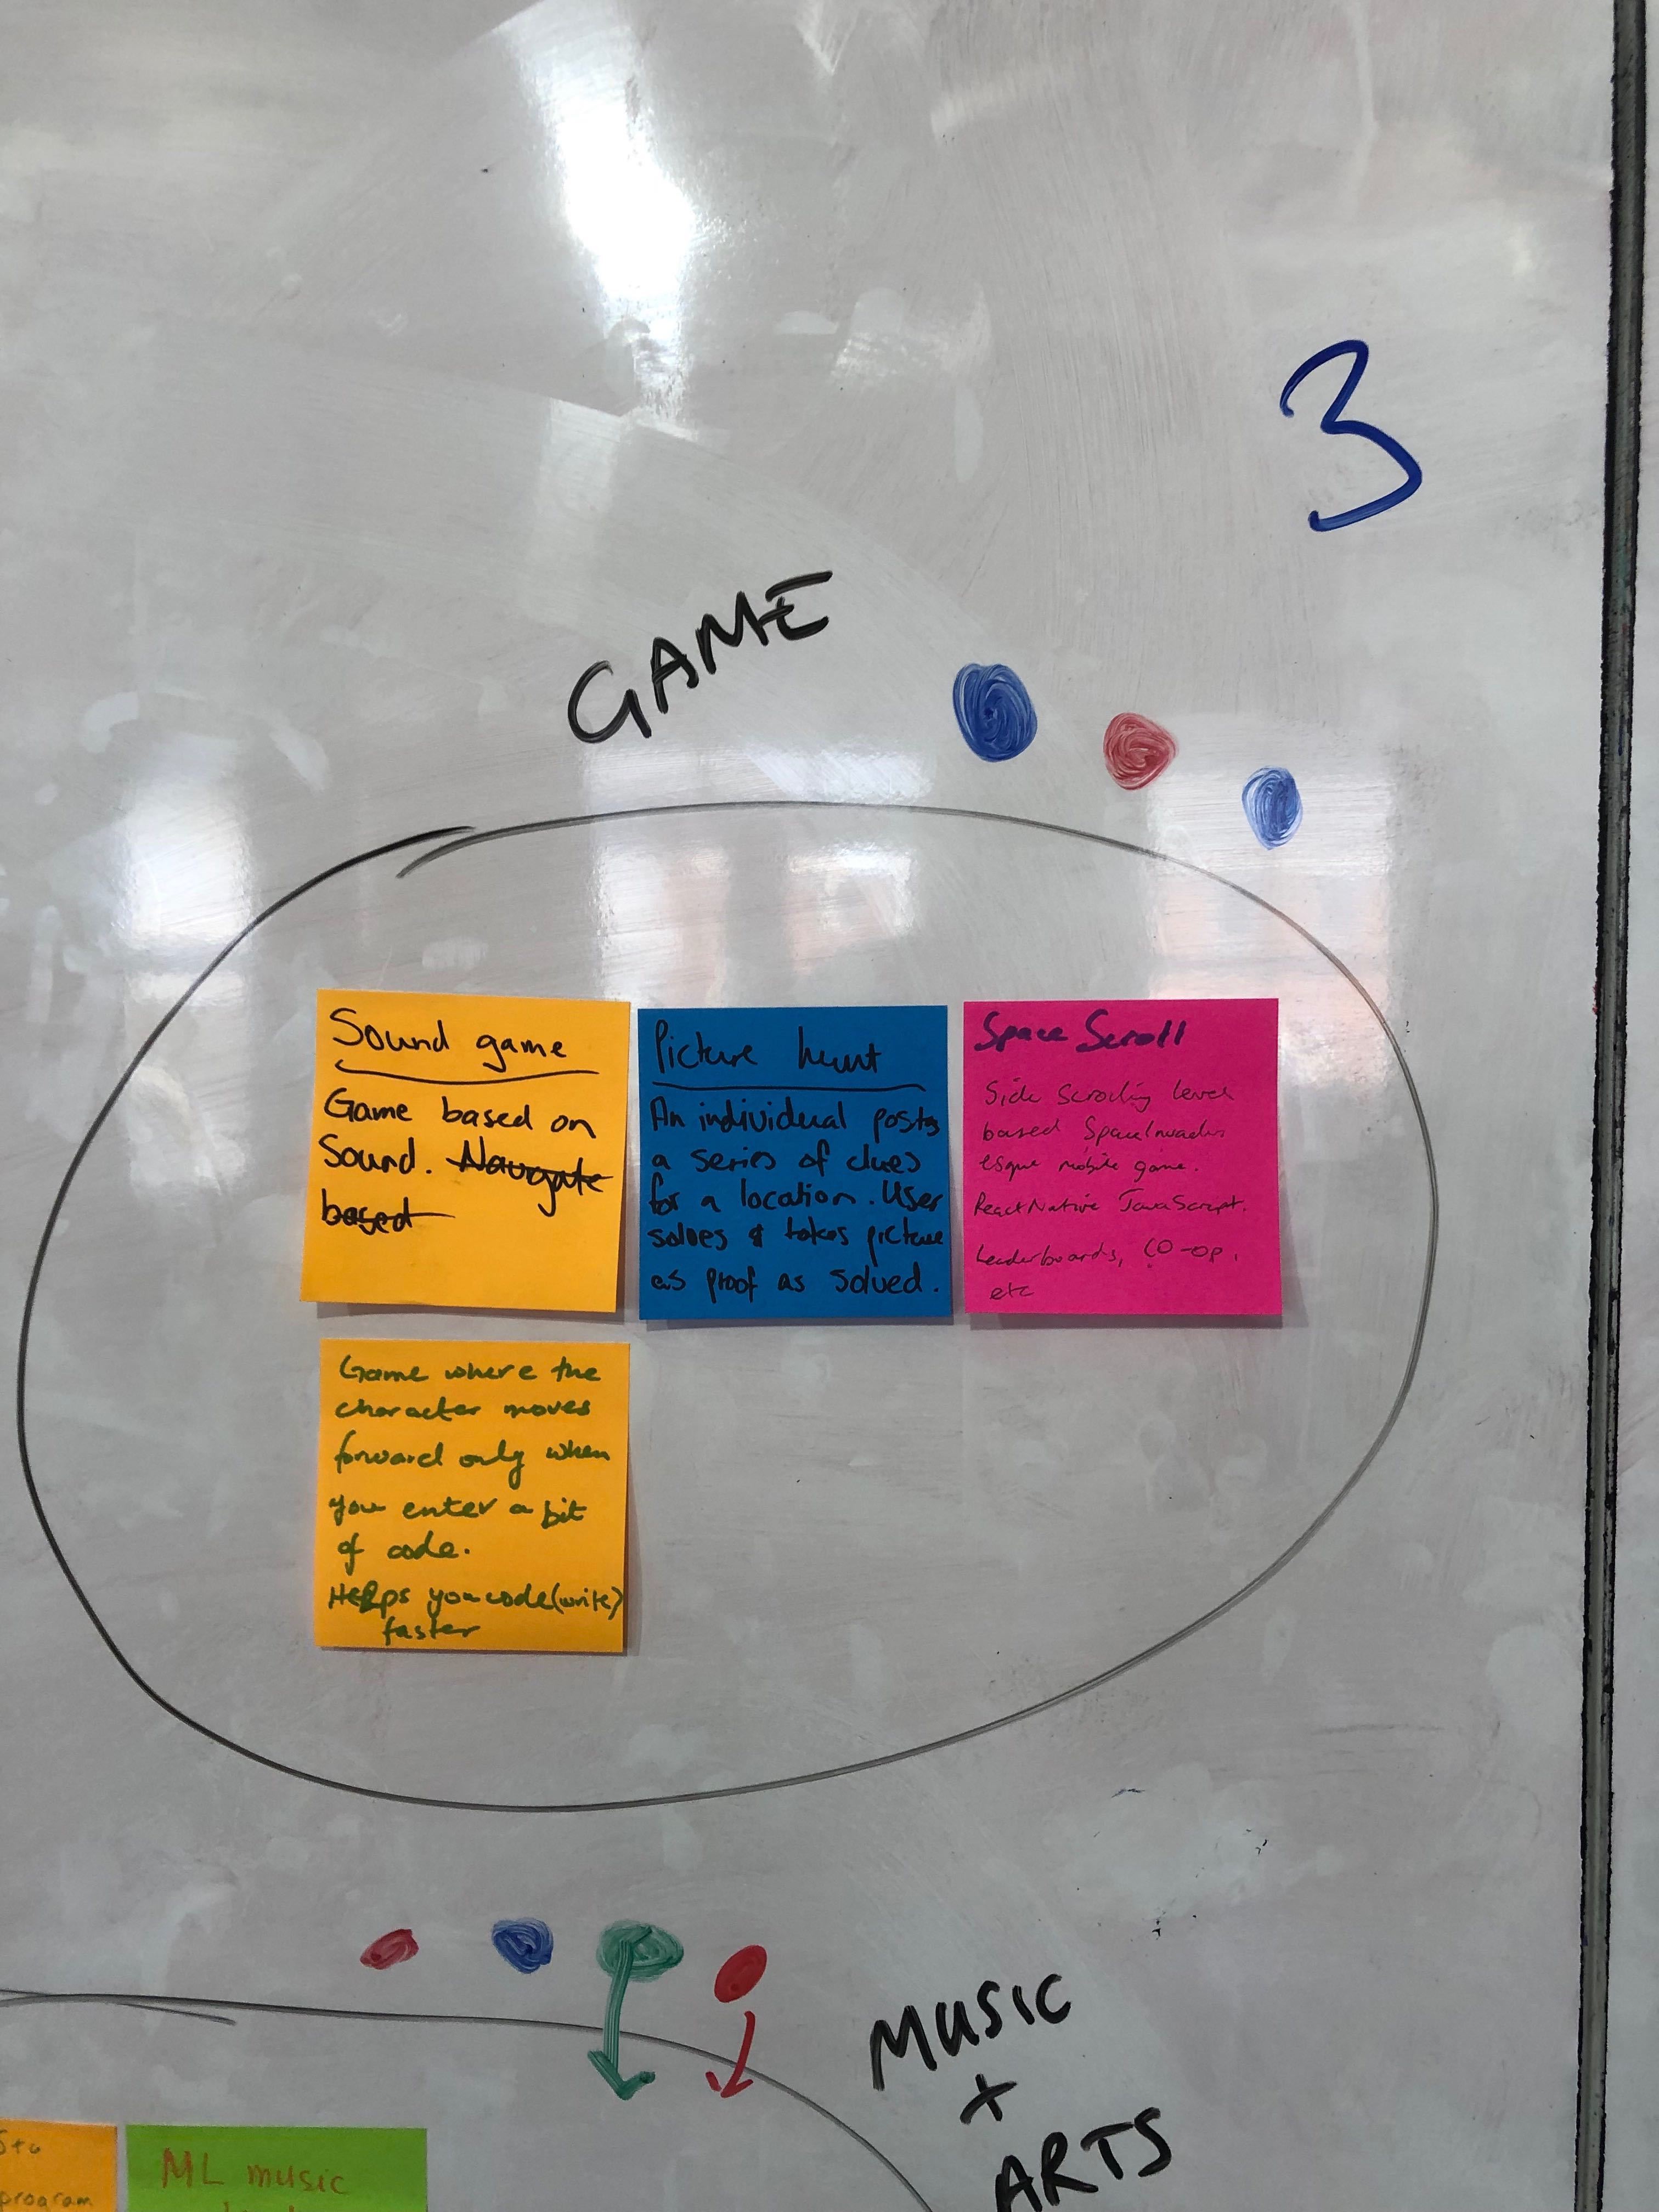 3
GAME
Sound game
Game based on
Sound. Navigate
based
Picture hunt
An individual posts
a series of clues
for a location. User
solves & takes picture
as proof as solved.
Space Scroll
Side Scrolling level
based Space Invaders
esque mobile game.
React Native JavaScript.
Leaderboards, CO-op,
etc
Game where the
character moves
forward only when
you enter a bit
of code.
Helps you code (write)
faster
MUSIC
+
ARTS
program
ML music